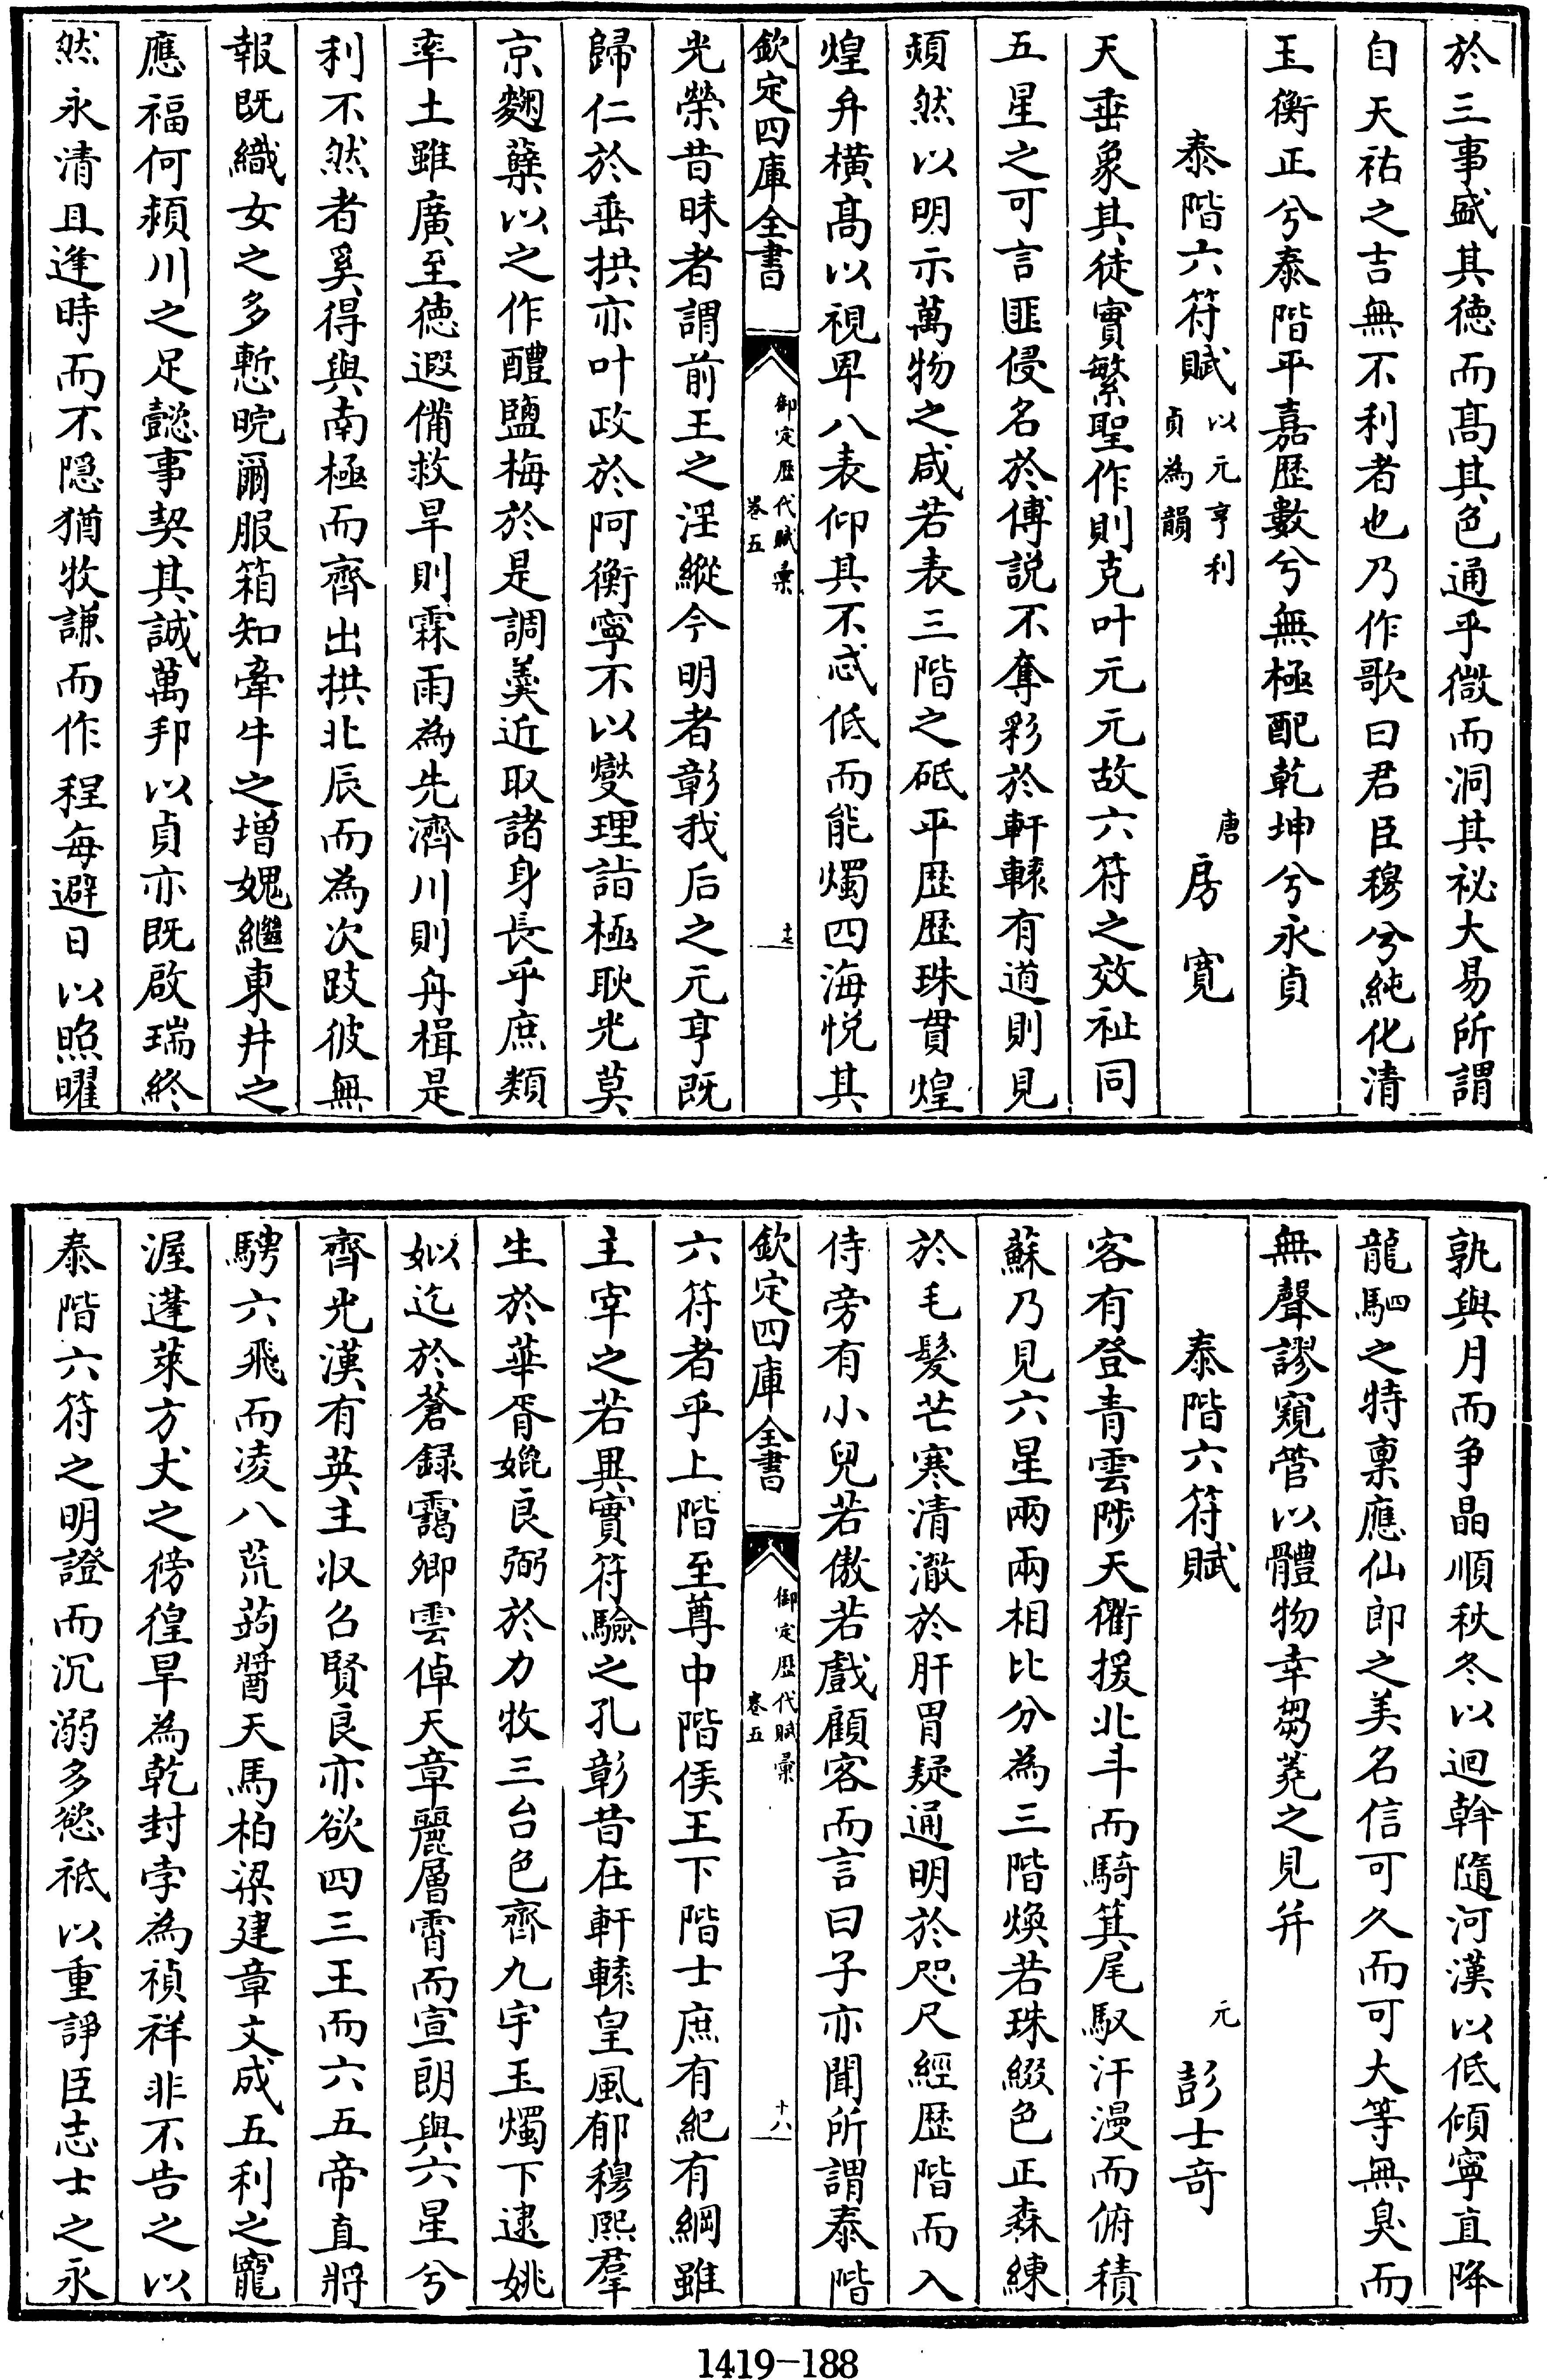 於三事盛其徳而髙其色通乎微而洞其祕大易所謂
自天祐之吉無不利者也乃作歌曰君臣穆兮純化清
玉衡正兮泰階平嘉歴數兮無極配乾坤兮永貞
泰階六符賦以元亨利貞為韻 唐房寛
天垂象其徒實繁聖作則克叶元元故六符之效祉同
五星之可言匪侵名於傅説不奪彩於軒轅有道則見
頻然以明示萬物之咸若表三階之砥平歴歴珠貫煌
煌弁横髙以視卑八表仰其不忒低而能燭四海悦其
欽定四庫全書 御定歴代賦彙 卷五 十七
光榮昔昧者謂前王之淫縱今明者彰我后之元亨既
歸仁於垂拱亦叶政於阿衡寧不以爕理詣極耿光莫
京麴蘖以之作醴鹽梅於是調羮近取諸身長乎庶類
率土雖廣至徳遐備救旱則霖雨為先濟川則舟楫是
利不然者奚得與南極而齊出拱北辰而為次跂彼無
報既織女之多慙睆爾服箱知牽牛之增媿繼東井之
應福何頻川之足懿事契其誠萬邦以貞亦既啟瑞終
然永清且逢時而不隠猶牧謙而作程每避日以照曜
孰與月而争晶順秋冬以迴斡隨河漢以低傾寧直降
龍駟之特稟應仙郎之美名信可久而可大等無臭而
無聲謬窺管以體物幸芻蕘之見弁
泰階六符賦 元彭士奇
客有登青雲陟天衢援北斗而騎箕尾馭汗漫而俯積
蘇乃見六星兩兩相比分為三階煥若珠綴色正森練
於毛髮芒寒清澈於肝胃疑通明於咫尺經歴階而入
侍旁有小兒若傲若戲顧客而言曰子亦聞所謂泰階
欽定四庫全書 御定歴代賦彙 卷五 十八
六符者乎上階至尊中階侯王下階士庶有紀有綱雖
主宰之若異實符驗之孔彰昔在軒轅皇風郁穆熙羣
生於華胥媲良弼於力牧三台色齊九宇玉燭下逮姚
姒迄於蒼録靄卿雲倬天章麗層霄而宣朗與六星兮
齊光漢有英主収召賢良亦欲四三王而六五帝直將
騁六飛而凌八荒蒟醬天馬柏梁建章文成五利之寵
渥蓬萊方丈之徬徨旱為乾封孛為禎祥非不告之以
泰階六符之明證而沉溺多慾祗以重諍臣志士之永
1419-188